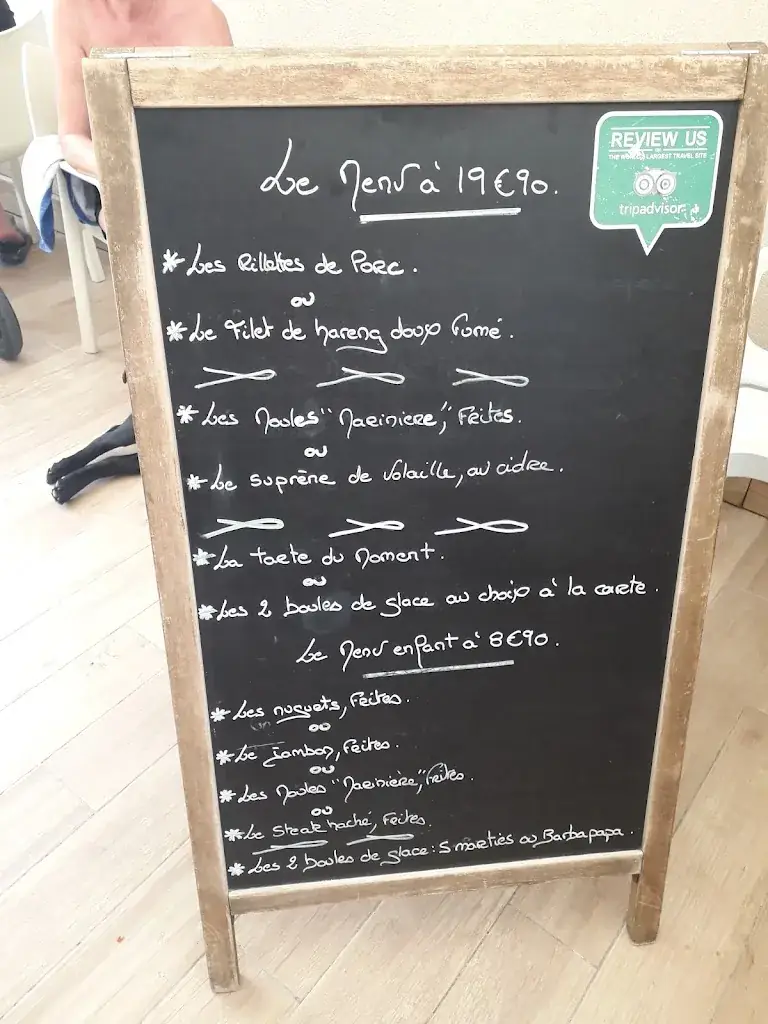 REVIEW US
ON
THE WORLD'S LARGEST TRAVEL SITE
tripadvisor
Le Menu à 19€90.
* Les Rillettes de Porc.
ou
* Le Filet de hareng doux Fumé.
* Les Moules "Marinière", Frites.
ou
* Le suprême de Volaille, au cidre.
* La tarte du Moment.
ou
* Les 2 boules de glace au choix à la carte.
Le Menu enfant à 8€90.
* Les nuguets, Frites.
ou
* Le jambon, Frites.
ou
* Les Moules "Marinière", Frites.
ou
* Le Steak haché, Frites.
* Les 2 boules de glace: Smarties ou Barbapapa.